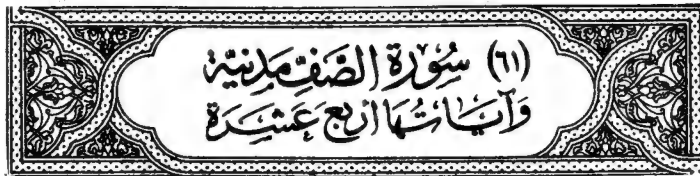 (٦١) سُورَة الصَّفِّ مَدنيَّة
وَآيَاتُهَا أربَع عَشِرَة